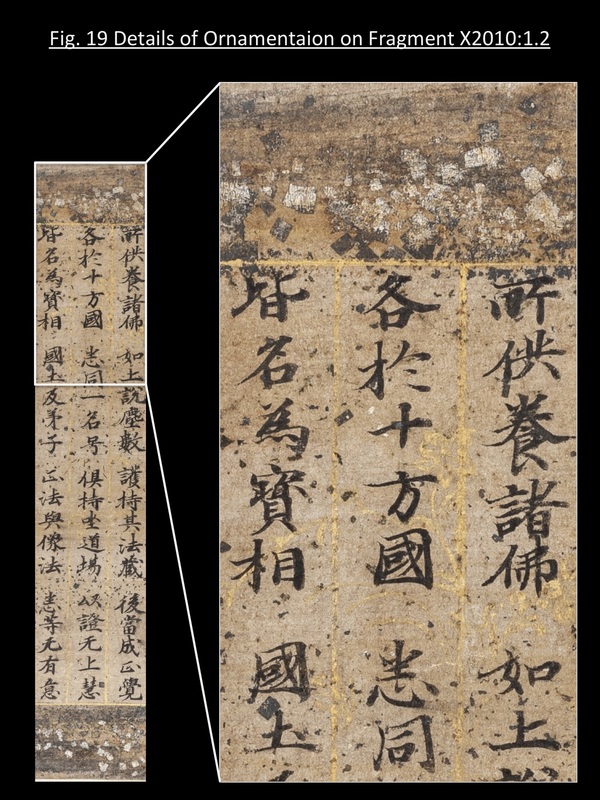 Fig. 19 Details of Ornamentaion on Fragment X2010:1.2
所供養諸佛 如上說塵數 護持其法藏 後當成正覺
各於十方國 悉同一名号 俱時坐道場 以證无上慧
皆名為寶相 國土及弟子 正法與像法 悉等无有異
所供養諸佛 如上
各於十方國 悉同
皆名為寶相 國土